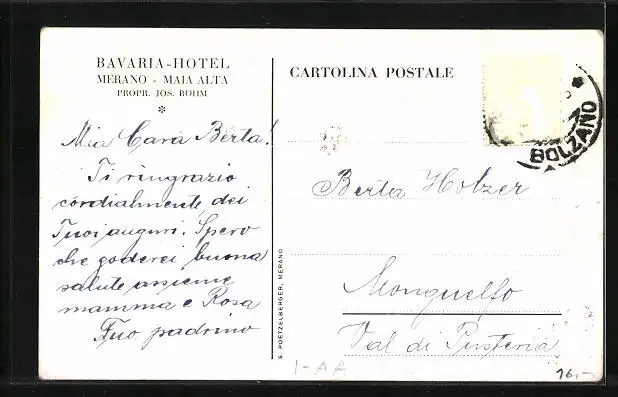 BAVARIA-HOTEL
MERANO - MAIA ALTA
PROPR. JOS. ROHM
*
Mia Cara Berta!
Ti ringrazio
cordialmente dei
Tuoi auguri. Spero
che goderei buona
salute assieme
mamma e Rosa
Tuo padrino
S. POETZELBERGER, MERANO
CARTOLINA POSTALE
BOLZANO
Berta Holzer
Monguelfo
Val di Pusteria
I-AA
16,-